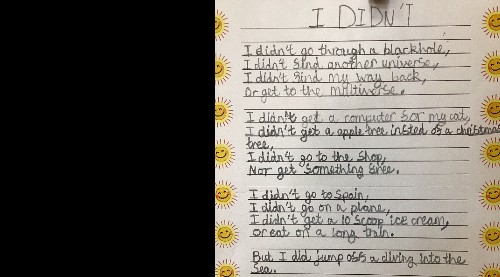 I DIDN'T
I didn't go through a blackhole,
I didn't find another universe,
I didn't find my way back,
Or get to the multiverse.
I didn't get a computer for my cat,
I didn't get a apple tree insted of a christmas
tree,
I didn't go to the shop,
Nor get something free.
I didn't go to spain,
I didn't go on a plane,
I didn't get a 10 scoop ice cream,
Or eat on a long train.
But I did jump off a diving into the
Sea.